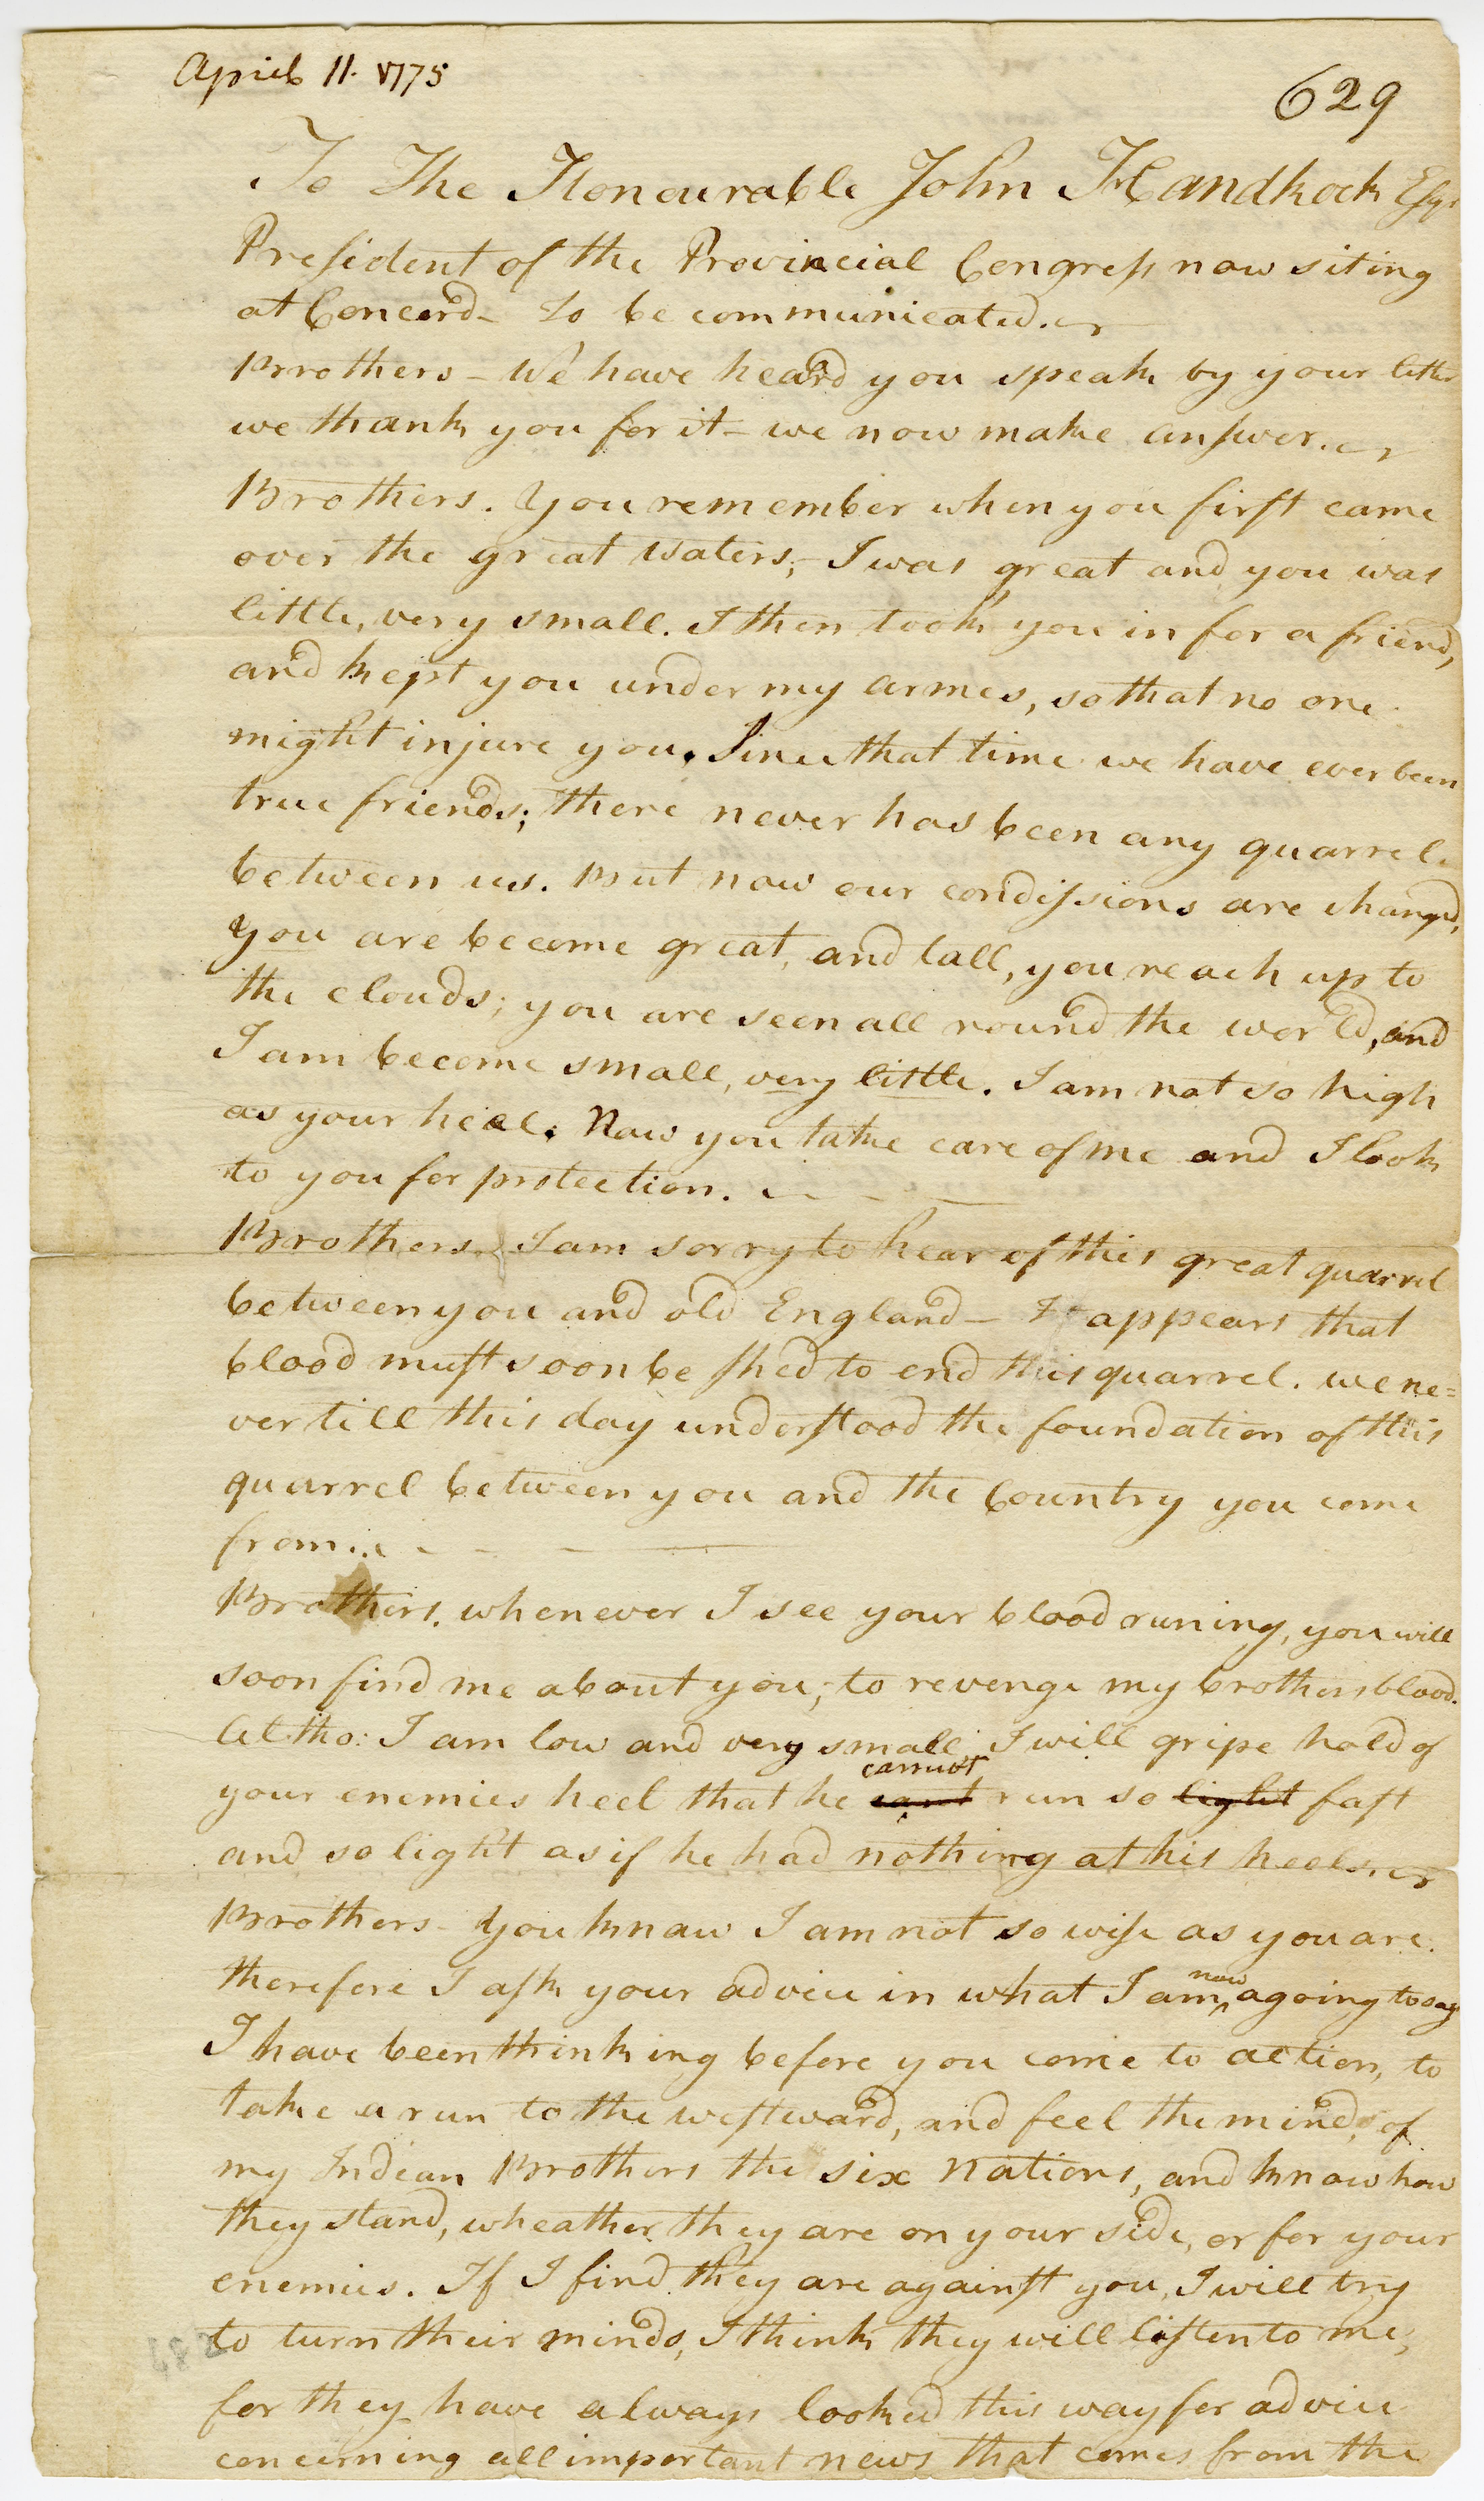 April 11. 1775
629
To The Honourable John Handkock Esqr
President of the Provincial Congress now siting
at Concord - to be communicated.
Brothers - We have heard you speak by your letter
we thank you for it - we now make answer.
Brothers. You remember when you first came
over the great waters, I was great and you was
little, very small. I then took you in for a friend,
and kept you under my armes, so that no one
might injure you. Since that time we have ever been
true friends; there never has been any quarrel
between us. But now our condissions are changed,
you are become great, and tall, you reach up to
the clouds; you are seen all round the world, and
I am become small, very little. I am not so high
as your heel. Now you take care of me and I look
to you for protection.
Brothers. I am sorry to hear of this great quarrel
between you and old England - It appears that
blood must soon be shed to end this quarrel. we ne=
ver till this day understood the foundation of this
quarrel between you and the Country you come
from.
Brothers. whenever I see your blood runing, you will
soon find me about you, to revenge my brothers blood.
Altho: I am low and very small, I will gripe hold of
your enemies heel that he cant cannot run so light fast
and so light as if he had nothing at his heels.
Brothers - You know I am not so wise as you are.
therefore I ask your advice in what I am now agoing to say
I have been thinking before you come to action, to
take a run to the westward, and feel the minds of
my Indian Brothers the six Nations, and know how
they stand, wheather they are on your side, or for your
enemies. If I find they are against you, I will try
to turn their minds, I think they will listen to me,
for they have always looked this way for advice
concerning all important news that comes from the